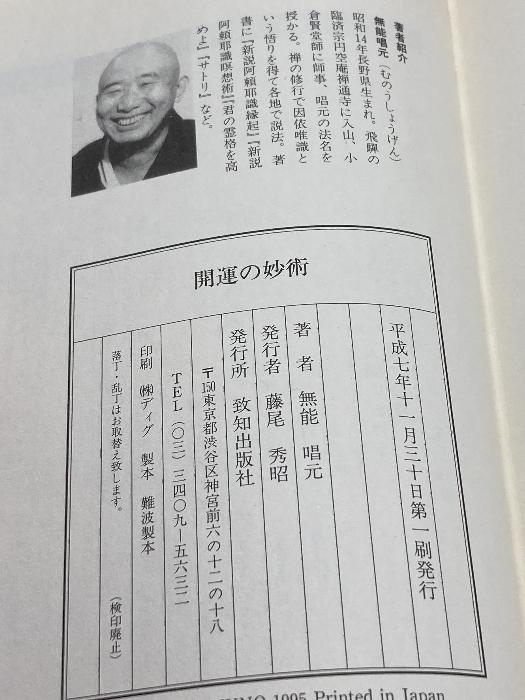 著者紹介
無能唱元（むのうしょうげん）
昭和14年長野県生まれ。飛騨の
臨済宗円空庵禅通寺に入山、小
倉賢堂師に師事、唱元の法名を
授かる。禅の修行で因依唯識と
いう悟りを得て各地で説法。著
書に『新説阿頼耶識縁起』『新説
阿頼耶識瞑想術』『君の霊格を高
めよ』『サトリ』など。
開運の妙術
平成七年十一月三十日第一刷発行
著者 無能 唱元
発行者 藤尾 秀昭
発行所 致知出版社
〒150東京都渋谷区神宮前六の十二の十八
TEL（〇三）三四〇九―五六三二
印刷 ㈱ディグ 製本 難波製本
落丁・乱丁はお取替え致します。
（検印廃止）
1995 Printed in Japan